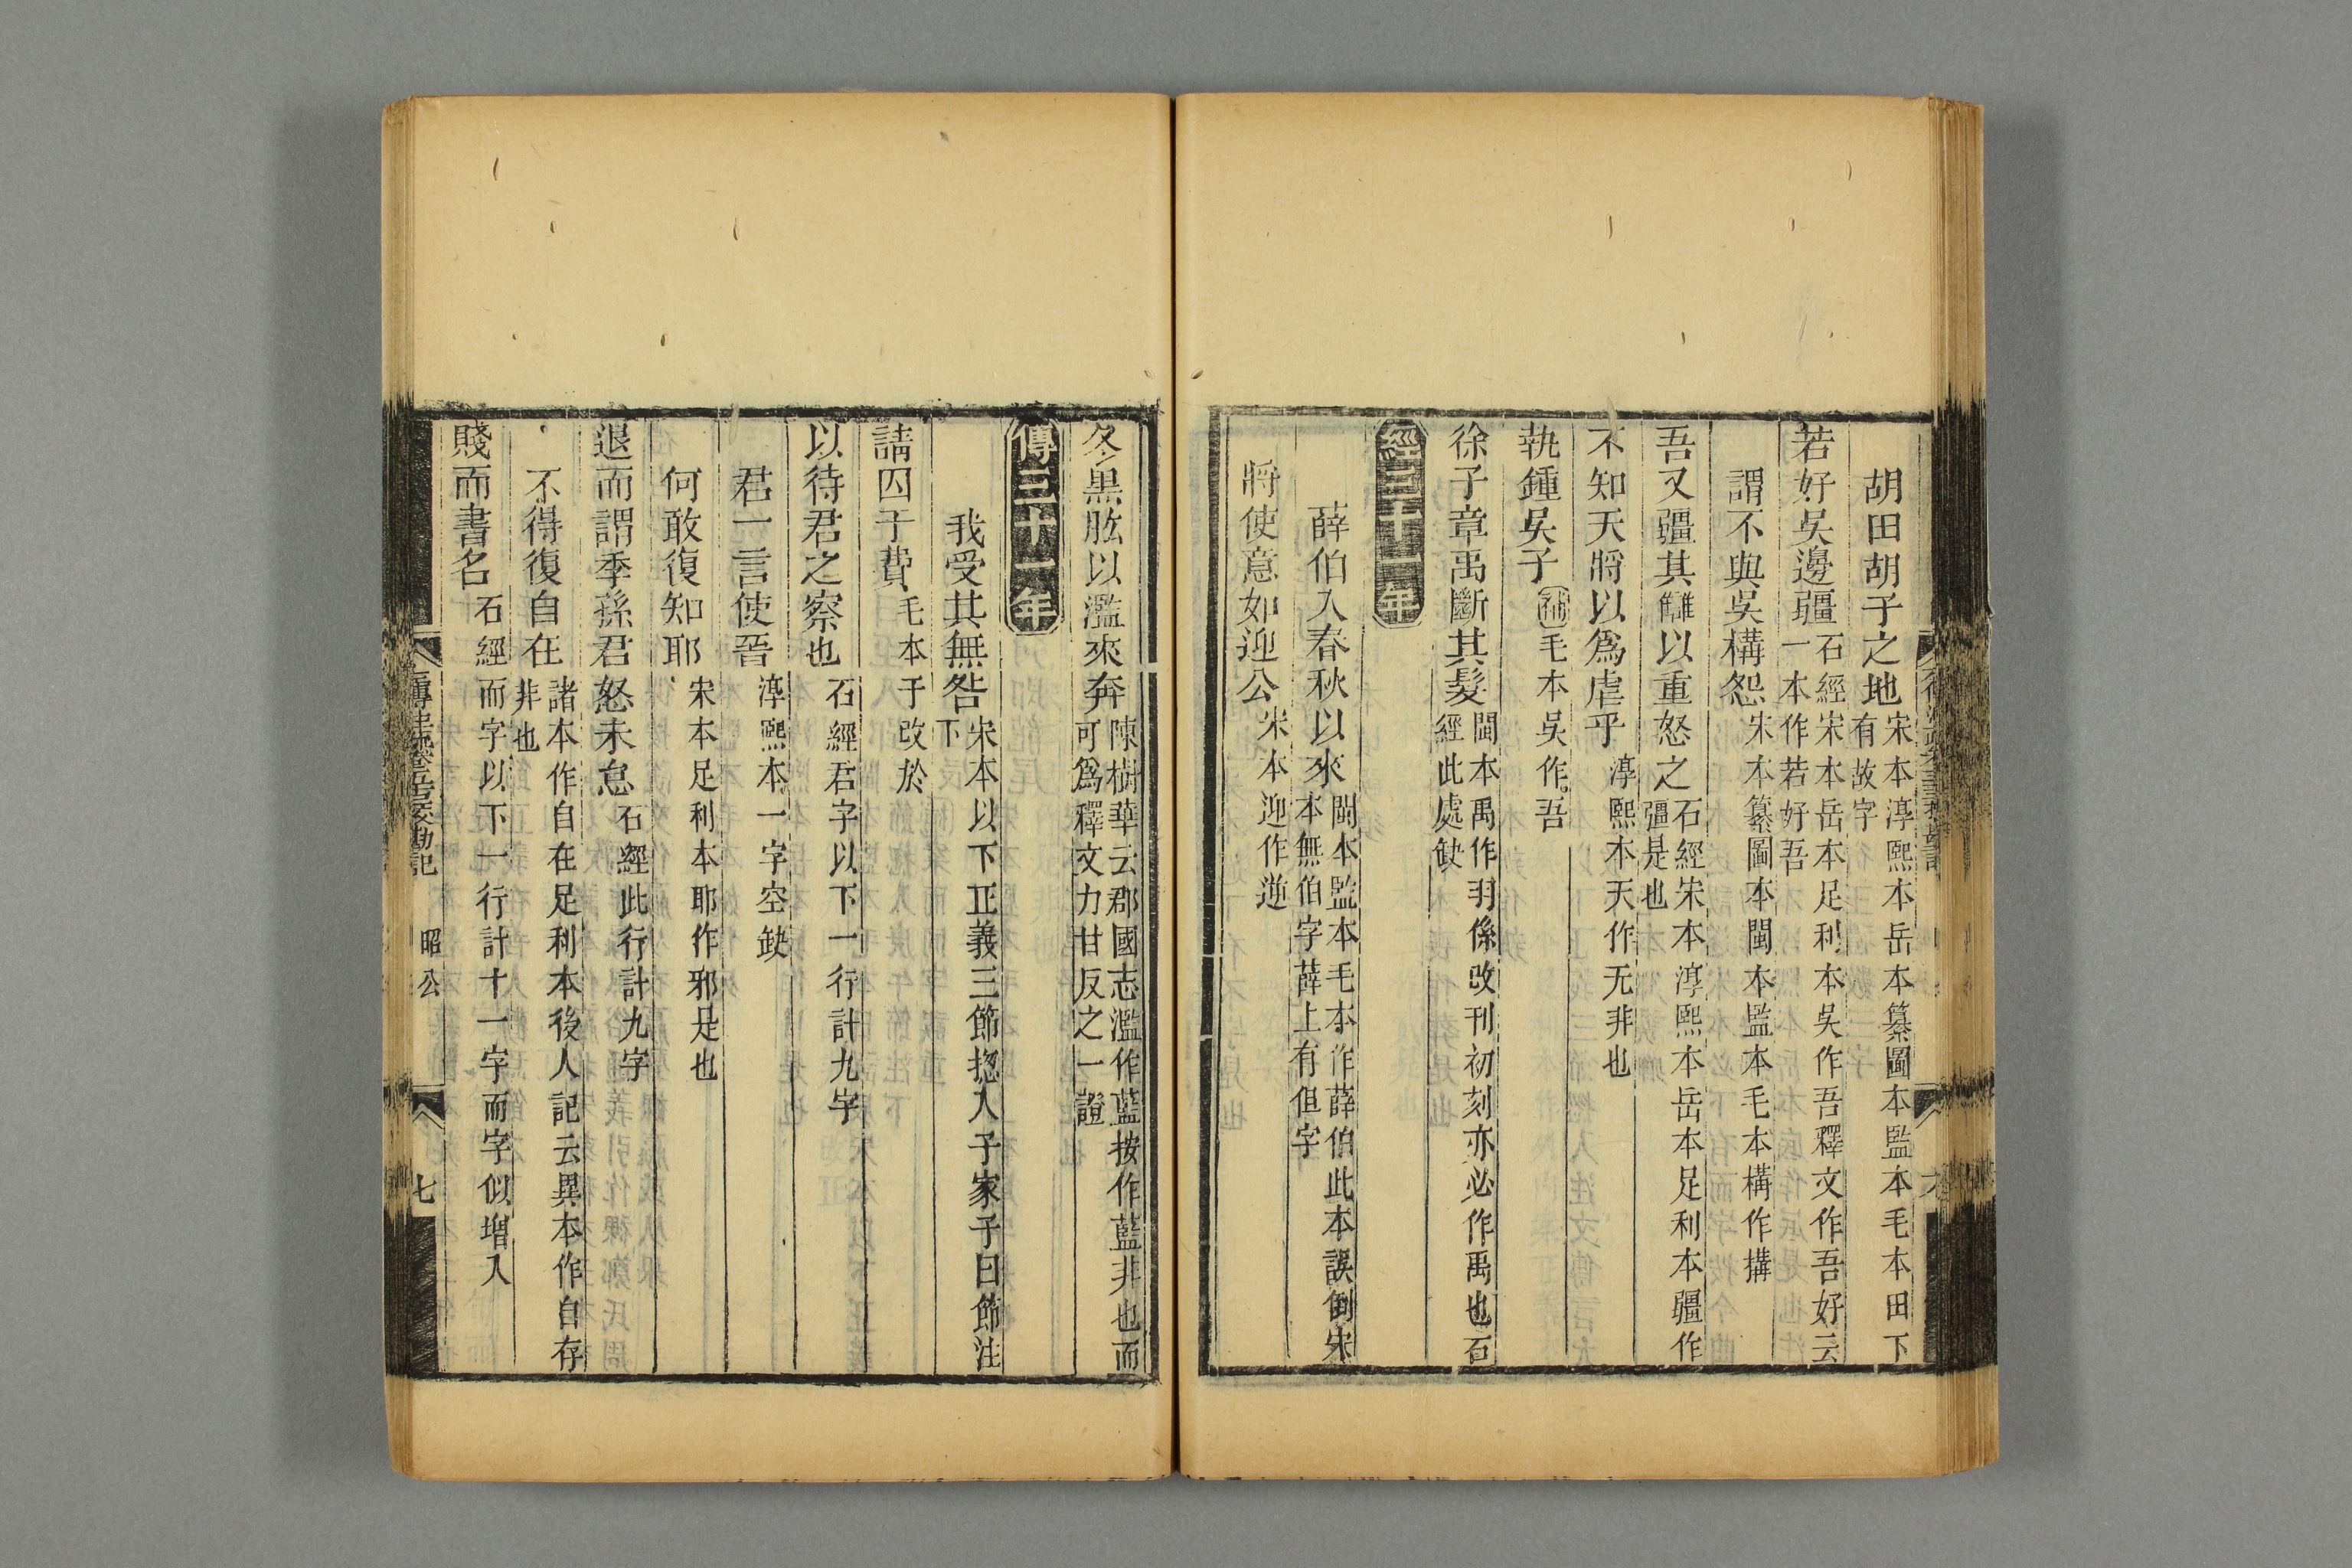 胡田胡子之地宋本淳熙本岳本纂圖本監本毛本田下有故字
若好吳邊疆石經宋本岳本足利本吳作吾釋文作吾好云一本作若好吾
謂不與吳構怨宋本纂圖本閩本監本毛本構作搆
吾又疆其讎以重怒之石經宋本淳熙本岳本足利本疆作彊是也
不知天將以爲虐乎淳熙本天作无非也
執鍾吳子補毛本吳作吾
徐子章禹斷其髮閩本禹作羽係改刊初刻亦必作禹也石經此處缺
經三十一年
薛伯入春秋以來閩本監本毛本作薛伯此本誤倒宋本無伯字薛上有但字
將使意如迎公宋本迎作逆
冬黑肱以濫來奔陳樹華云郡國志濫作藍按作藍非也而可爲釋文力甘反之一證
傳三十一年
我受其無咎宋本以下正義三節揔入子家子曰節注下
請囚于費毛本于改於
以待君之察也石經君字以下一行計九字
君一言使晉淳熙本一字空缺
何敢復知耶宋本足利本耶作邪是也
退而謂季孫君怒未怠石經此行計九字
不得復自在諸本作自在足利本後人記云異本作自存非也
賤而書名石經而字以下一行計十一字而字似增入
昭公
七